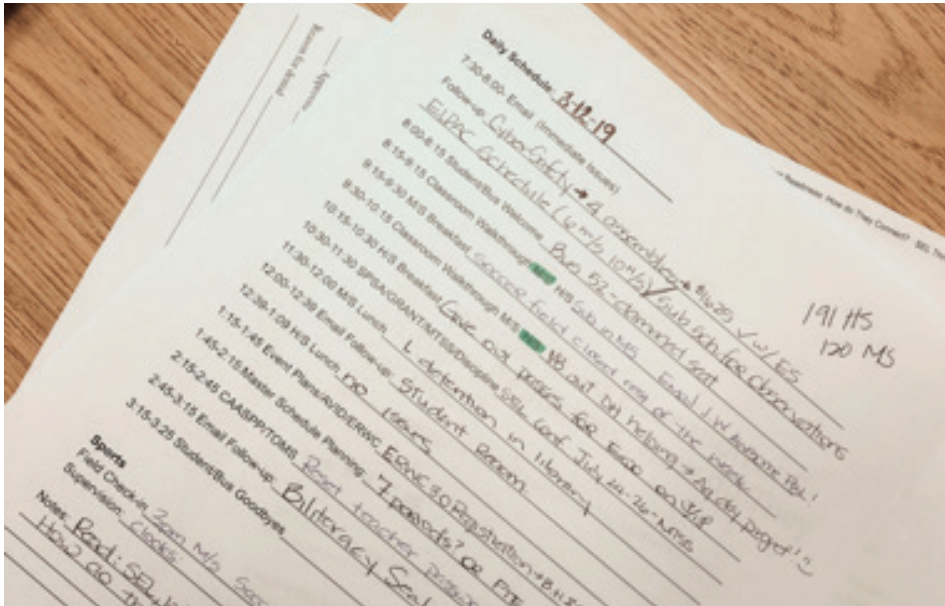 Approved
Reason for denial
Daily Schedule 3-12-19
7:30-8:00- Email (Immediate Issues)
Follow-up CyberSafety → 4 assemblies → $1625 ✓ w/ ES
ELPAC Schedule (6 M/S 10 H/S) ✓ Sub sch for observations
8:00-8:15 Student/Bus Welcome Bus 52- damaged seat
8:15-9:15 Classroom Walkthrough H/S Sub in MS Email J.W Awesome PBL!
9:15-9:30 M/S Breakfast Soccer field closed rest of the week
9:30-10:15 Classroom Walkthrough M/S VB out DH helping → Ag day project!
10:15-10:30 H/S Breakfast Give out passes for
10:30-11:30 SPSA/GRANT/MTSS/Discipline SEL Conf July 24-26- MTSS
11:30-12:00 M/S Lunch 1 detention in library
12:00-12:39 Email Follow-up Student Recom
12:39-1:09 H/S Lunch no issues
1:15-1:45 Event Plans/AVID/ERWC ERWC 3.0 Registration
1:45-2:15 Master Schedule Planning 7 periods? or FTE
2:15-2:45 CAASPP/TOMS Reset teacher
2:45-3:15 Email Follow-up Biliteracy Seal
3:15-3:25 Student/Bus Goodbyes
Sports
Field Check-in 3pm M/S Socc
Supervision clocks
Notes Read: SEL
How do
Readiness: How do They Connect? SEL
191 HS
120 MS